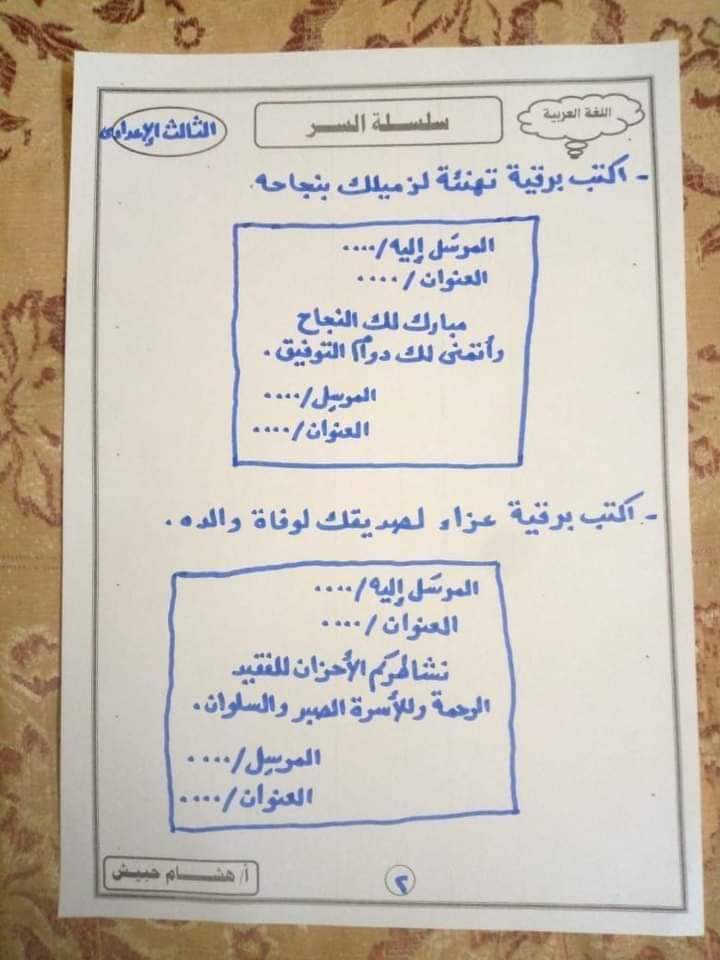 اللغة العربية
سلسلة السر
الثالث الإعدادى
- اكتب برقية تهنئة لزميلك بنجاحه.
المرسَل إليه/....
العنوان/....
مبارك لك النجاح
وأتمنى لك دوام التوفيق.
المرسِل/....
العنوان/....
- اكتب برقية عزاء لصديقك لوفاة والده.
المرسَل إليه/....
العنوان/....
نشاطركم الأحزان للفقيد
الرحمة وللأسرة الصبر والسلوان.
المرسِل/....
العنوان/....
٢
أ/ هشام حبيش